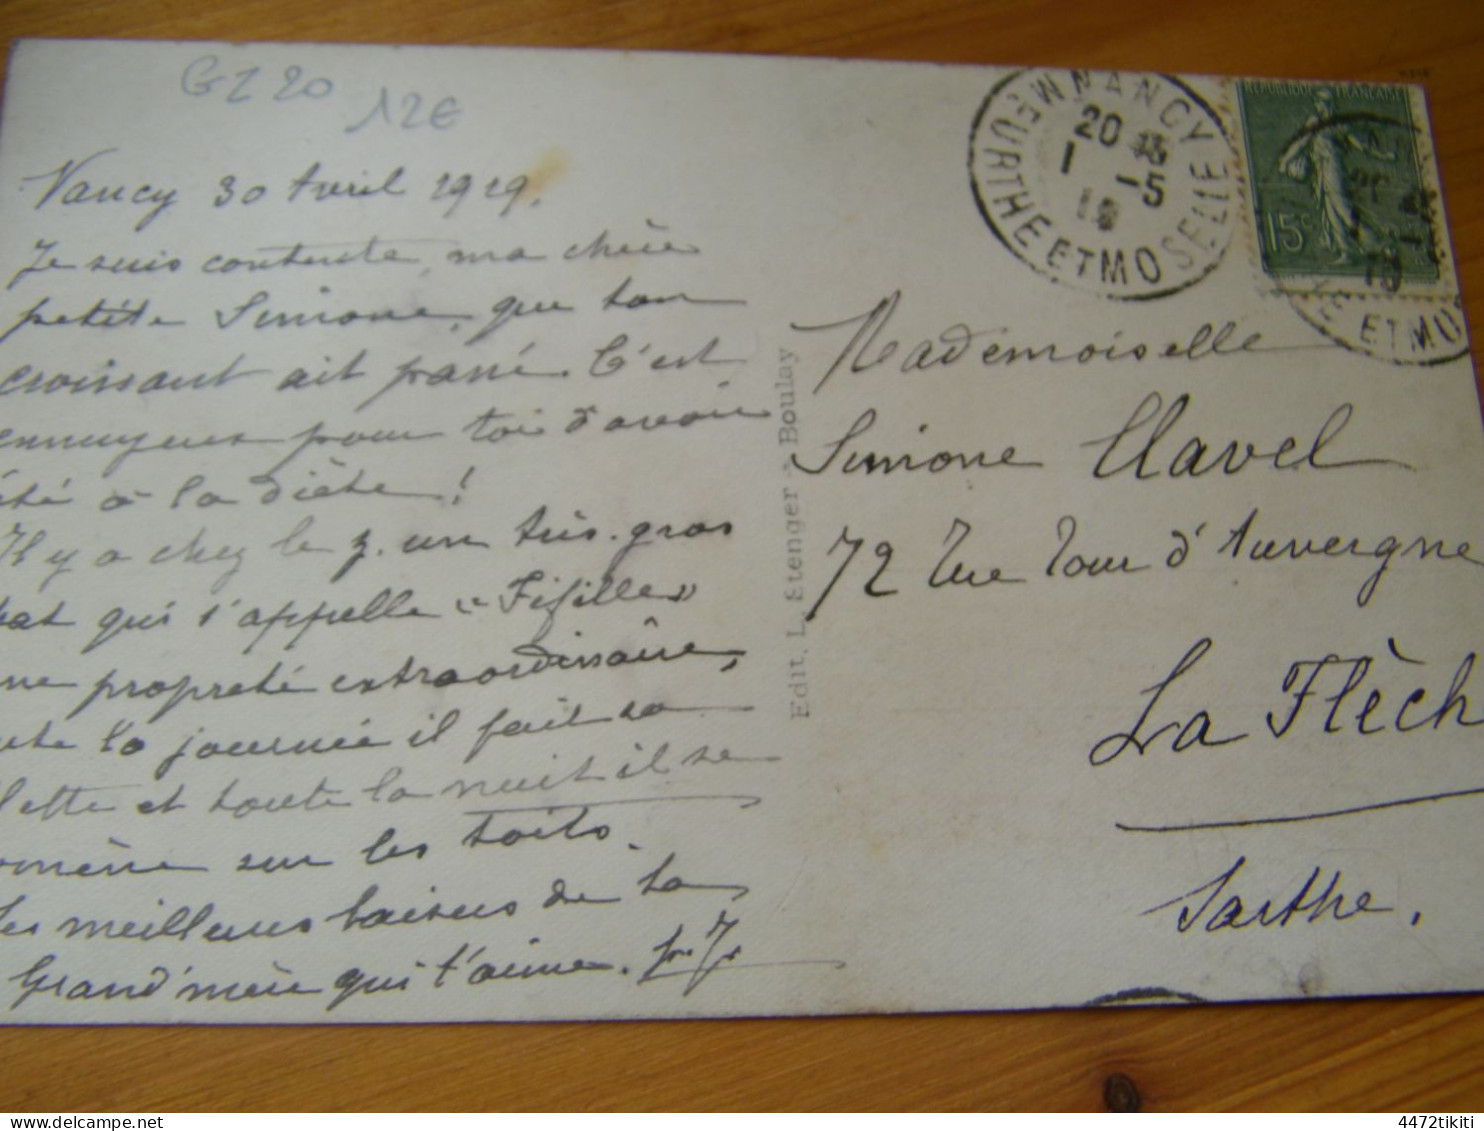 GZ20
12€
Nancy 30 Avril 1919.
Je suis contente, ma chère
petite Simone, que ton
croissant ait passé. C'est
ennuyeux pour toi d'avoir
été à la diète !
Il y a chez le z. un très gros
chat qui s'appelle « Fifille »
une propreté extraordinaire,
toute la journée il fait sa
toilette et toute la nuit il se
promène sur les toits.
Les meilleurs baisers de ta
Grand'mère qui t'aime.
Edit. L. Etenger - Boulay
NANCY
20 45
1 -5
19
MEURTHE ET MOSELLE
REPUBLIQUE FRANÇAISE
15c
19
ET MO
Mademoiselle
Simone Clavel
72 rue Tour d'Auvergne
La Flèch
Sarthe.
delcampe.net
4472tikiti